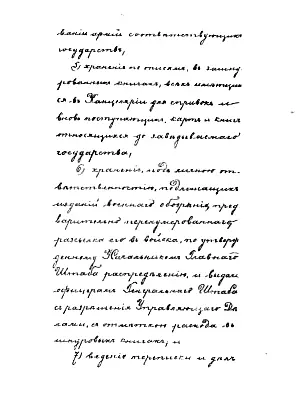 ваніи армій соотвѣтствующихъ
государствъ;
5) храненіе по описямъ, въ зашну-
рованныхъ книгахъ, всѣхъ имѣющих-
ся въ Канцеляріи для справокъ и
вновь поступающихъ, картъ и книгъ
относящихся до завѣдываемаго
государства;
6) храненіе, подъ личною от-
вѣтственностію, подлежащихъ
изданій военнаго обозрѣнія, пред
варительно перенумерованныхъ
разсылка его въ войска, по утверж-
денному Начальникомъ Главнаго
Штаба распредѣленію, и выдача
офицерамъ Генеральнаго Штаба
съ разрѣшенія Управляющаго Дѣ-
лами, съ отмѣткою расхода въ
шнуровыхъ книгахъ, и
7) веденіе переписки и дѣлъ